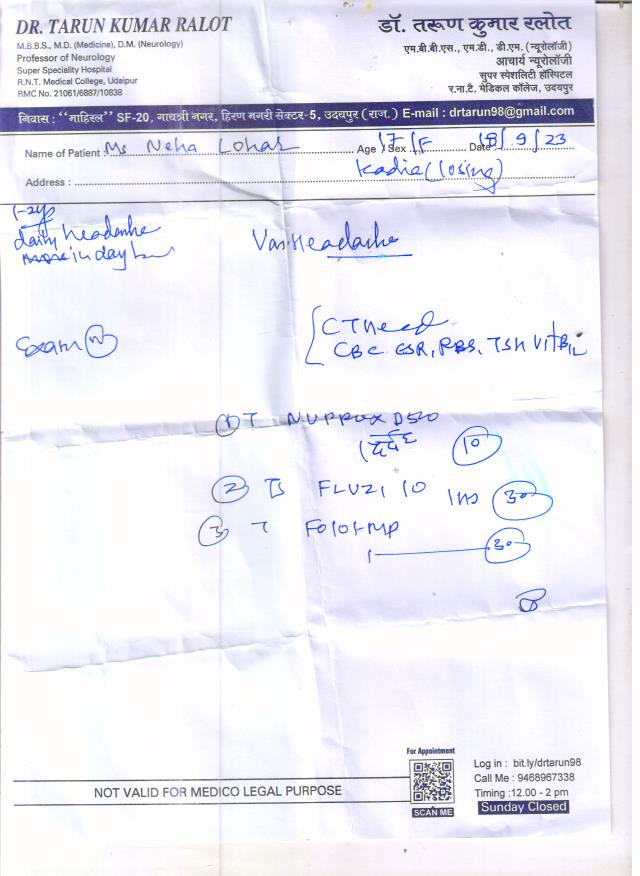 DR. TARUN KUMAR RALOT
M.B.B.S., M.D. (Medicine), D.M. (Neurology)
Professor of Neurology
Super Speciality Hospital
R.N.T. Medical College, Udaipur
RMC No. 21061/6887/10838
डॉ. तरूण कुमार रलोत
एम.बी.बी.एस., एम.डी., डी.एम. (न्यूरोलॉजी)
आचार्य न्यूरोलॉजी
सुपर स्पेशलिटी हॉस्पिटल
र.ना.टै. मेडिकल कॉलेज, उदयपुर
निवास : "माहिरल" SF-20, गायत्री नगर, हिरण मगरी सेक्टर-5, उदयपुर (राज.) E-mail : drtarun98@gmail.com
Name of Patient : Ms Neha Lohar Age 17 / Sex F Date 18/9/23
Address :
daily headache
in day
Headache
Exam (N)
CT head
CBC ESR, RBS, TSH Vit B12
① T
(दर्द 10
② FLUZI 10 30
③ T 30
For Appointment
SCAN ME
Log in : bit.ly/drtarun98
Call Me : 9468967338
Timing :12.00 - 2 pm
Sunday Closed
NOT VALID FOR MEDICO LEGAL PURPOSE